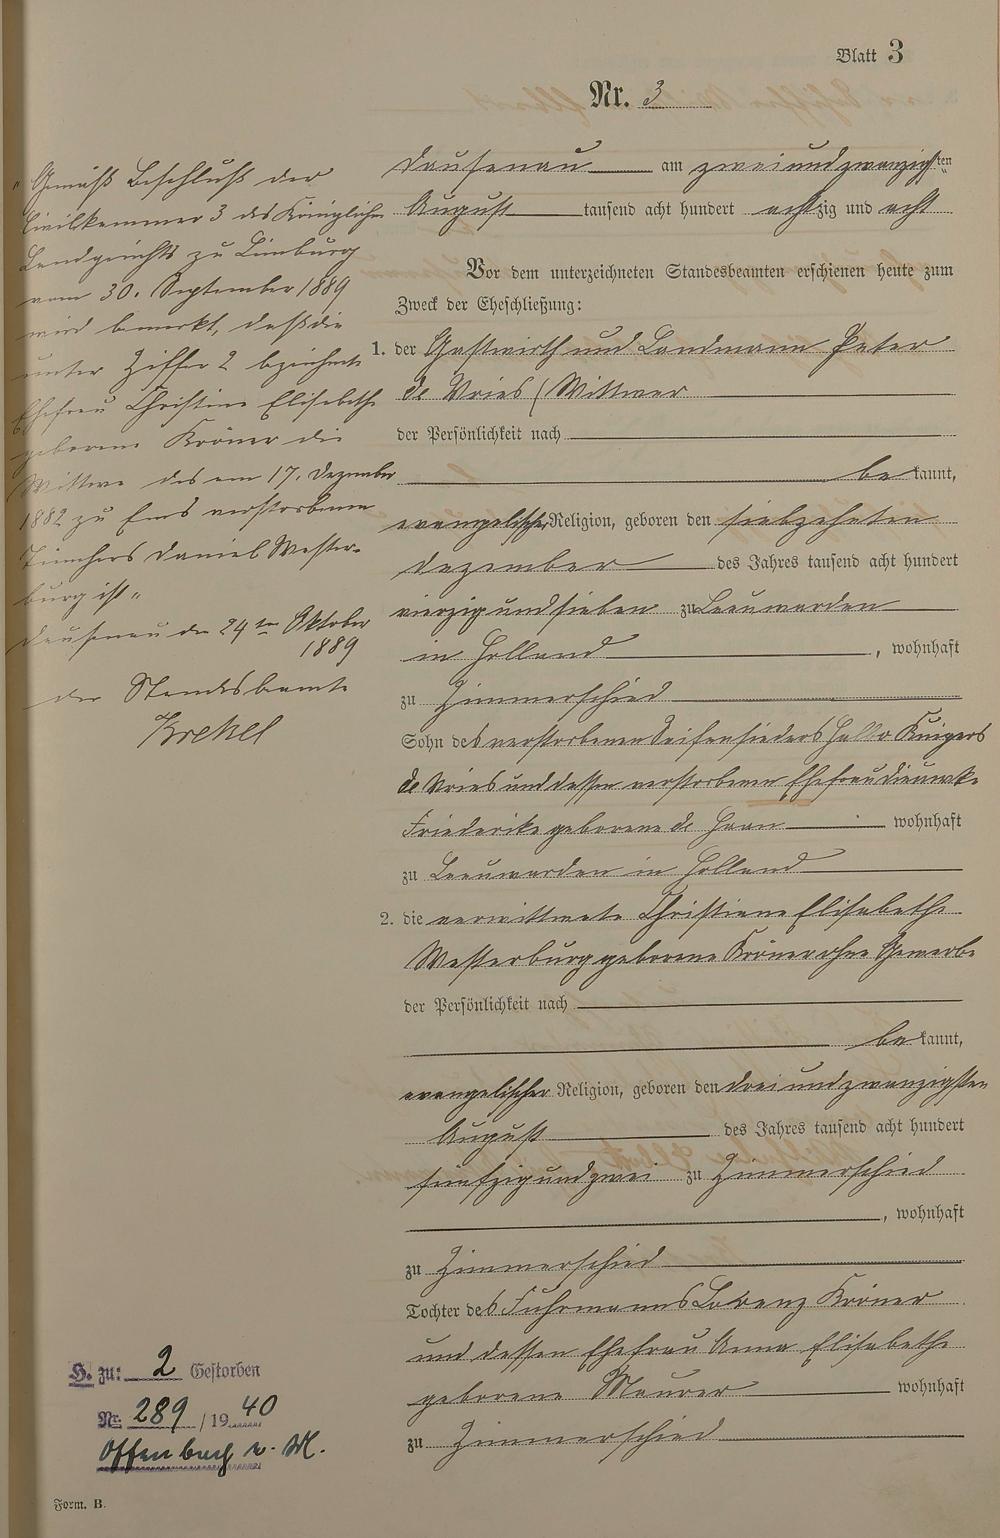 Blatt 3
Nr. 3
Dausenau am zwei und zwanzigsten
August tausend acht hundert achtzig und acht
Vor dem unterzeichneten Standesbeamten erschienen heute zum
Zweck der Eheschließung:
1. der Gastwirth und Landmann Peter
de Vries (Wittwer
der Persönlichkeit nach
be kannt,
evangelischer Religion, geboren den siebzehnten
Dezember des Jahres tausend acht hundert
vierzig und sieben zu Leeuwarden
in Holland, wohnhaft
zu Zimmerschied
Sohn des verstorbenen Seifensieders Kuipers
de Vries und dessen verstorbenen Ehefrau Dieuwke
Friederike geborene de Haan wohnhaft
zu Leeuwarden in Holland
2. die verwittwete Christiane Elisabethe
Westerburg geborene Kröner ohne Gewerbe
der Persönlichkeit nach
be kannt,
evangelischer Religion, geboren den drei und zwanzigsten
August des Jahres tausend acht hundert
fünfzig und zwei zu Zimmerschied
, wohnhaft
zu Zimmerschied
Tochter des Fuhrmanns Lorenz Kröner
und dessen Ehefrau Anna Elisabethe
geborene Maurer wohnhaft
zu Zimmerschied
"Gemäß Beschluß der
Civilkammer 3 des Königlichen
Landgerichts zu Limburg
vom 30. September 1889
wird bemerkt, daß die
unter Ziffer 2 bezeichnete
Ehefrau Christine Elisabethe
geborene Kröner die
Wittwe des am 17. Dezember
1882 zu Ems verstorbenen
Tünchers Daniel Wester-
burg ist"
Dausenau den 24ten Oktober
1889
der Standesbeamte
Krekel
H. zu: 2 Gestorben
Nr. 289 / 19 40
Offenbach a. M.
Form. B.